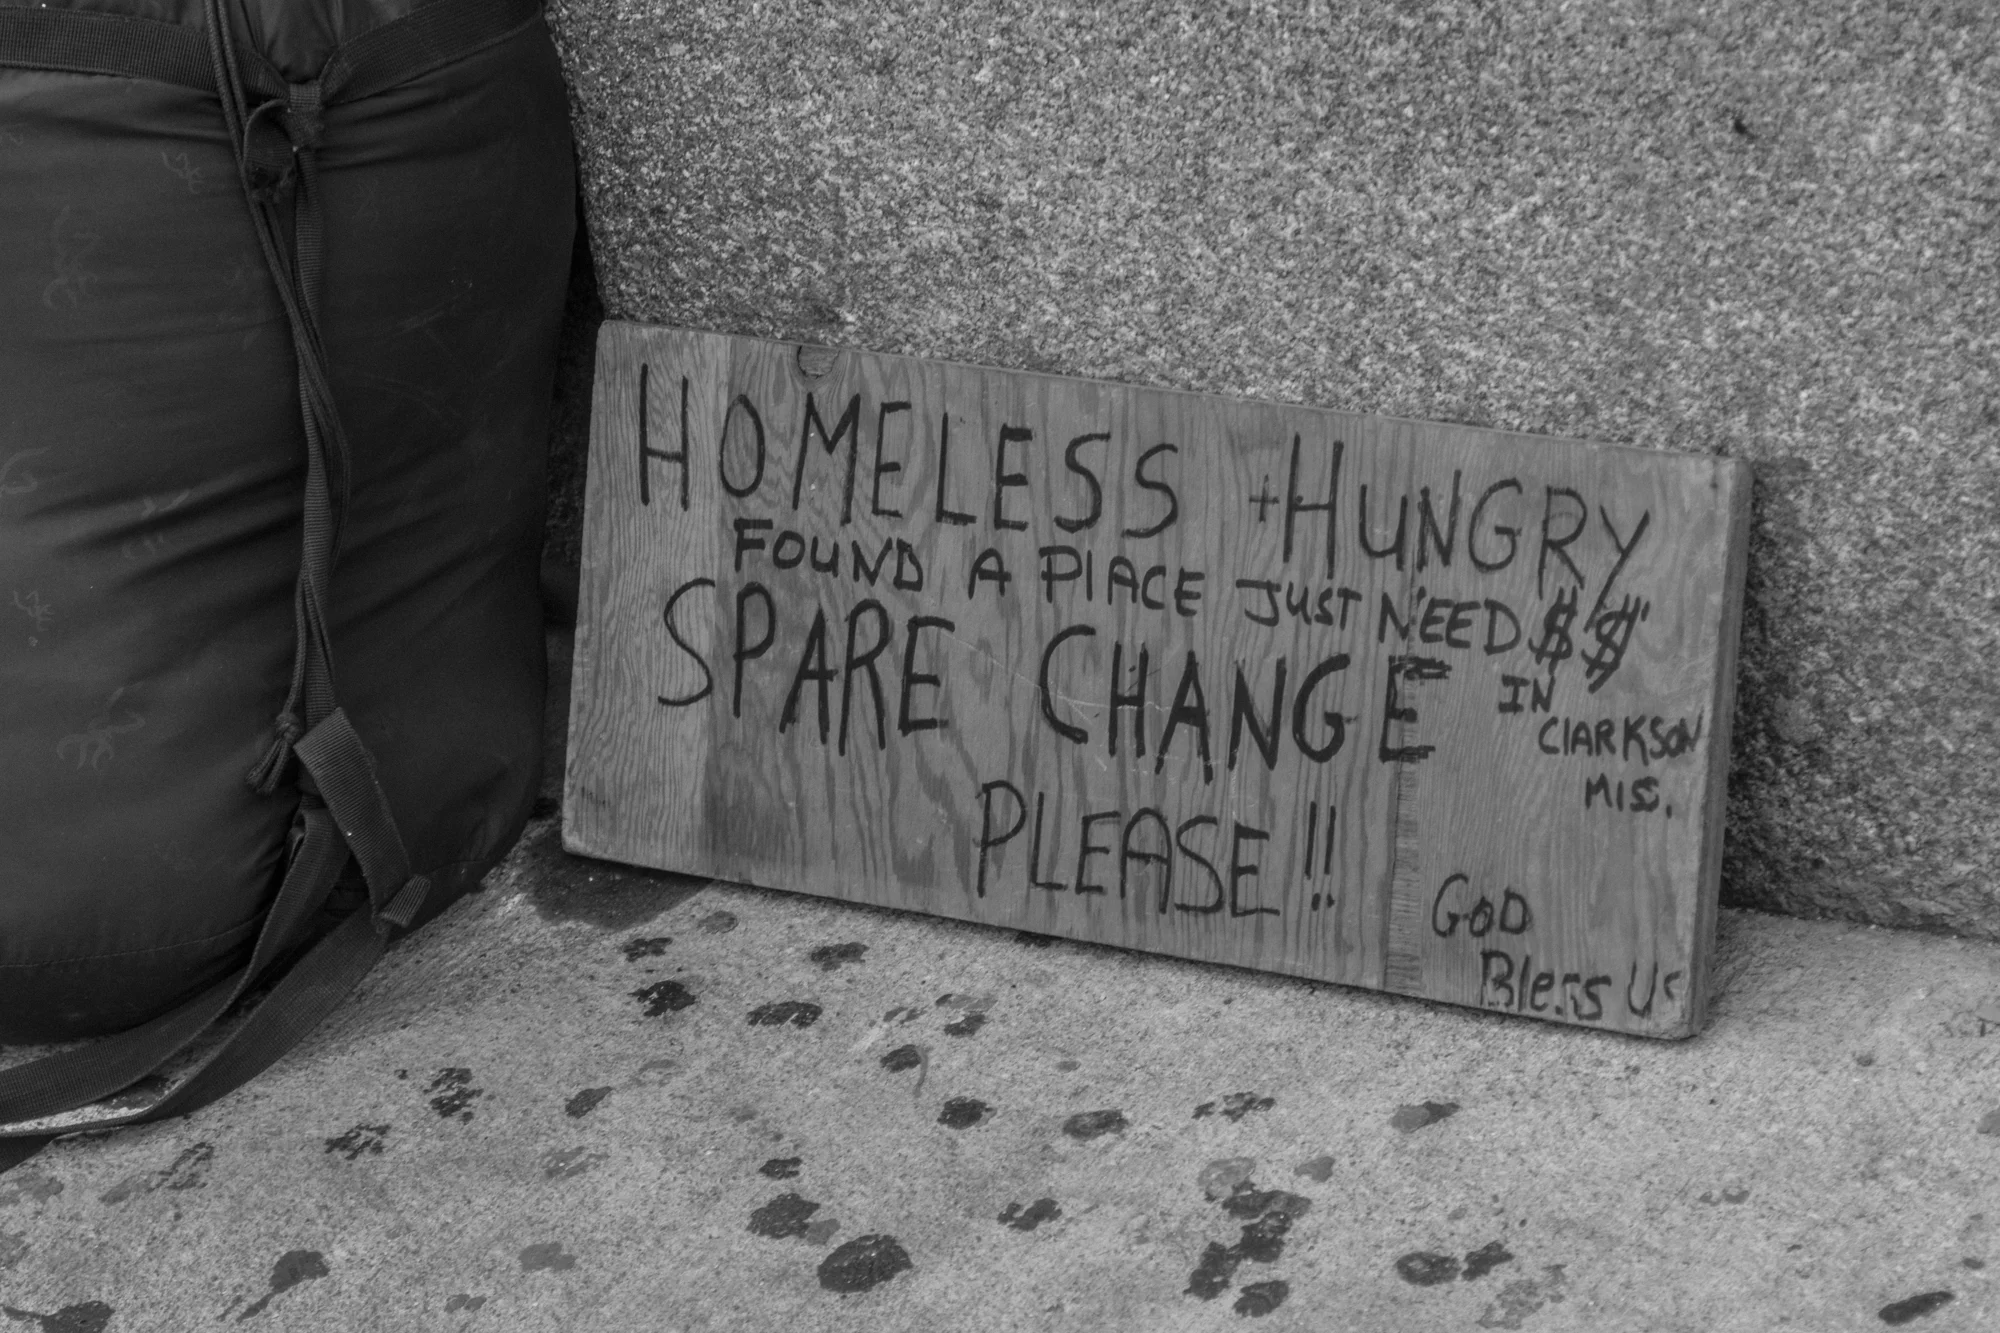 HOMELESS +HUNGRY
FOUND A PlACE JUST NEED $$
SPARE CHANGE
IN
ClARKSON
MISS.
PLEASE!!
GOD
Bless Us